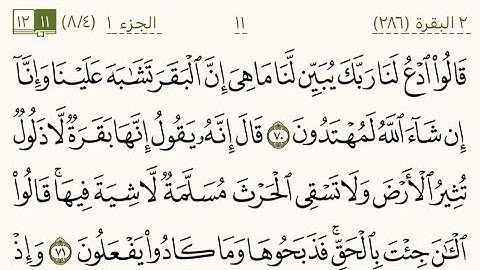 ٢ البقرة (٢٨٦) ١١ الجزء ١ (٨/٤) ١١ ١٢
قَالُوا۟ ٱدۡعُ لَنَا رَبَّكَ يُبَيِّن لَّنَا مَا هِيَ إِنَّ ٱلۡبَقَرَ تَشَٰبَهَ عَلَيۡنَا وَإِنَّآ
إِن شَآءَ ٱللَّهُ لَمُهۡتَدُونَ ٧٠ قَالَ إِنَّهُۥ يَقُولُ إِنَّهَا بَقَرَةٞ لَّا ذَلُولٞ
تُثِيرُ ٱلۡأَرۡضَ وَلَا تَسۡقِي ٱلۡحَرۡثَ مُسَلَّمَةٞ لَّا شِيَةَ فِيهَاۚ قَالُوا۟
ٱلۡـَٰٔنَ جِئۡتَ بِٱلۡحَقِّۚ فَذَبَحُوهَا وَمَا كَادُوا۟ يَفۡعَلُونَ ٧١ وَإِذۡ